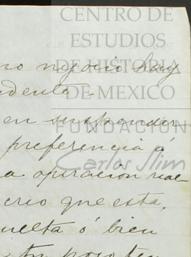 CENTRO DE
ESTUDIOS
DE HISTORIA
DE MEXICO
FUNDACIÓN
Carlos Slim
negocio hay
en suspender
preferencia á
a operacion real
creo que esta,
uelta ó bien